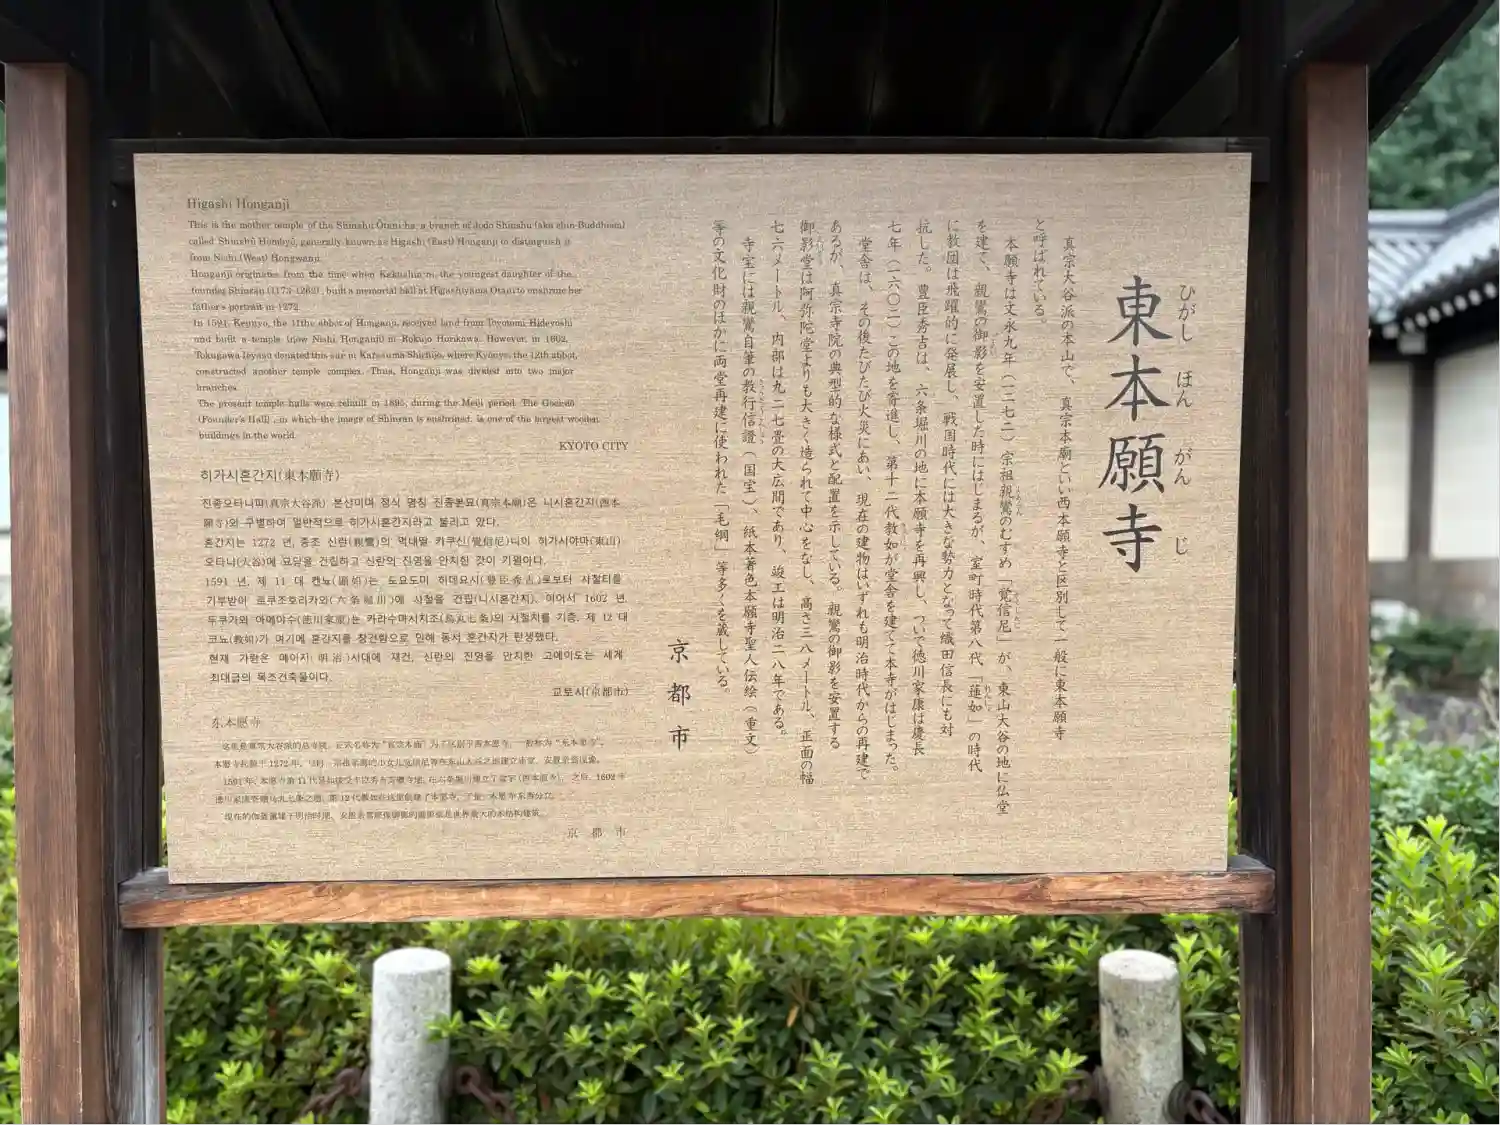 東本願寺
ひがし ほん がん じ
真宗大谷派の本山で、真宗本廟といい西本願寺と区別して一般に東本願寺
と呼ばれている。
本願寺は文永九年(一二七二)宗祖親鸞のむすめ「覚信尼」が、東山大谷の地に仏堂
を建て、親鸞の御影を安置した時にはじまるが、室町時代第八代「蓮如」の時代
に教団は飛躍的に発展し、戦国時代には大きな勢力となって織田信長にも対
抗した。豊臣秀吉は、六条堀川の地に本願寺を再興し、ついで徳川家康は慶長
七年(一六〇二)この地を寄進し、第十二代教如が堂舎を建てて本寺がはじまった。
堂舎は、その後たびたび火災にあい、現在の建物はいずれも明治時代からの再建で
あるが、真宗寺院の典型的な様式と配置を示している。親鸞の御影を安置する
御影堂は阿弥陀堂よりも大きく造られて中心をなし、高さ三八メートル、正面の幅
七六メートル、内部は九二七畳の大広間であり、竣工は明治二八年である。
寺宝には親鸞自筆の教行信證(国宝)、紙本著色本願寺聖人伝絵(重文)
等の文化財のほかに両堂再建に使われた「毛綱」等多くを蔵している。
京都市
Higashi Honganji
This is the mother temple of the Shinshu Ōtani-ha, a branch of Jodo Shinshu (aka shin-Buddhism)
called Shinshū Honbyō, generally known as Higashi (East) Honganji to distinguish it
from Nishi (West) Hongwanji.
Honganji originates from the time when Kakushin-ni, the youngest daughter of the
founder Shinran (1173-1262), built a memorial hall at Higashiyama Otani to enshrine her
father's portrait in 1272.
In 1591, Kennyo, the 11thc abbot of Honganji, received land from Toyotomi Hideyoshi
and built a temple (now Nishi Honganji) in Rokujo Horikawa. However, in 1602,
Tokugawa Ieyasu donated this site in Karasuma Shichijo, where Kyōnyo, the 12th abbot,
constructed another temple complex. Thus, Honganji was divided into two major
branches.
The present temple halls were rebuilt in 1895, during the Meiji period. The Goeidō
(Founder's Hall), in which the image of Shinran is enshrined, is one of the largest wooden
buildings in the world.
KYOTO CITY
히가시혼간지(東本願寺)
진종오타니파(真宗大谷派) 본산이며 정식 명칭 진종본묘(真宗本廟)은 니시혼간지(西本
願寺)와 구별하여 일반적으로 히가시혼간지라고 불리고 있다.
혼간지는 1272 년, 종조 신란(親鸞)의 막내딸 카쿠신(覺信尼)니이 히가시야마(東山)
오타니(大谷)에 묘당을 건립하고 신란의 진영을 안치한 것이 기원이다.
1591 년, 제 11 대 켄뇨(顯如)는 도요도미 히데요시(豊臣秀吉)로부터 사찰터를
기부받아 로쿠조호리카와(六条堀川)에 사찰을 건립(니시혼간지), 이어서 1602 년,
두쿠가와 이에야수(徳川家康)는 카라수마시치조(烏丸七条)의 사찰처를 기증, 제 12 대
코뇨(教如)가 여기에 혼간지를 창건함으로 인해 동서 혼간지가 탄생했다.
현재 가람은 메이지(明治)시대에 재건, 신란의 진영을 안치한 고에이도는 세계
최대급의 목조건축물이다.
교토시(京都市)
东本愿寺
京 都 市